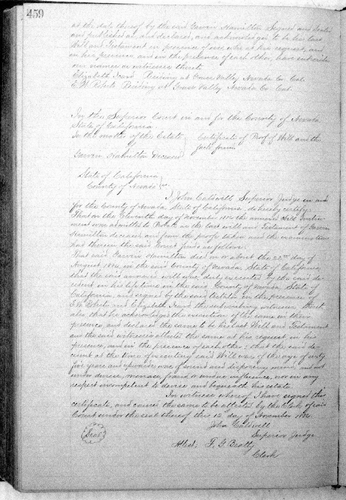 459
at the date thereof by the said Gavin Hamilton signed and sealed
and published as and declared, and acknowledged to be his last
Will and Testament in presence of us who at his request, and
in his presence and in the presence of each other, have subscribed
our names as witnesses thereto
Elizabeth Residing at Grass Valley Nevada Co. Cal.
Residing at Grass Valley Nevada Co. Cal.
In the Superior Court in and for the County of Nevada
State of California
In the matter of the Estate
of
Gavin Hamilton Deceased
Certificate of Proof of Will and the
facts found
State of California
County of Nevada
I John Caldwell Superior Judge in and
for the County of Nevada, State of California do hereby certify
That on the Eleventh day of November the annexed
was admitted to Probate as the last will and Testament of Gavin
Hamilton deceased and from the proofs taken and the examination
had therein the said Court finds as follows
That said Gavin Hamilton died on or about the 22nd day of
August in said County of Nevada, State of California
that the said annexed will was duly executed by the said
in his lifetime in the said County of Nevada State of
California, and signed by the said testator in the presence of
and Elizabeth the subscribing witnesses thereto
also that he acknowledged the execution of the same in their
presence, and declared the same to be his last Will and Testament
and the said witnesses attested the same at his request in his
presence, and in the presence of each other; that the said
at the time of executing said Will was of the age of sixty
years and upwards was of sound and disposing mind and not
under duress, menace, fraud or undue influence, nor in any
respect incompetent to devise and bequeath his estate.
In witness whereof I have signed this
certificate, and caused the same to be attested by the Clerk of said
Court under the seal thereof this 12th day of November
John Caldwell
Superior Judge
Seal
Attest
Clerk